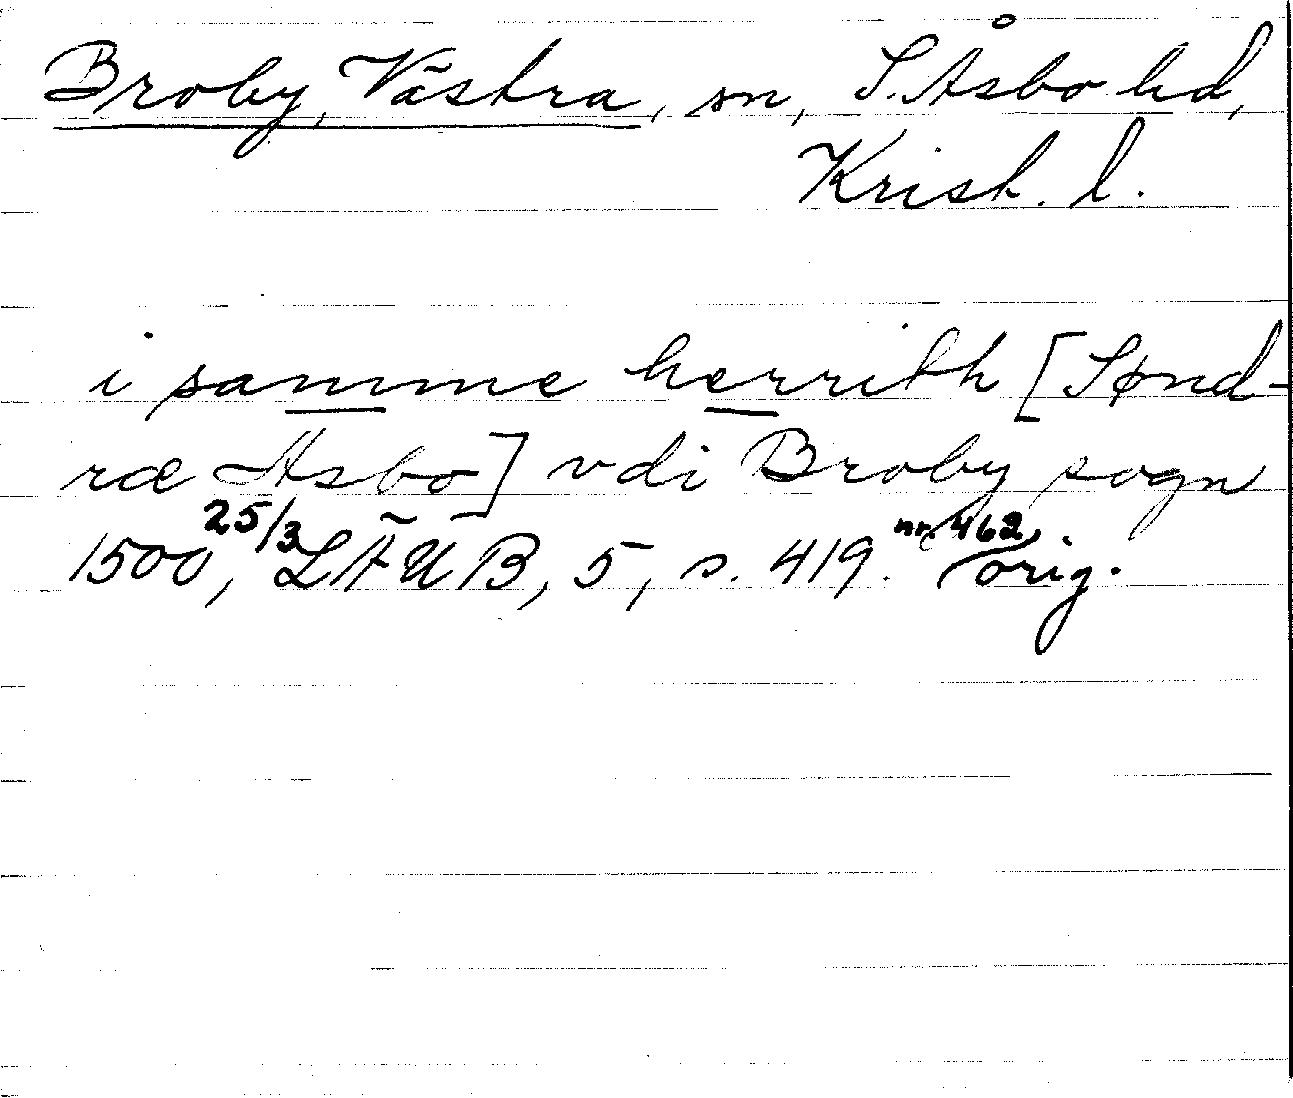 Broby, Västra, sn, S. Åsbo hd,
Krist. l.
i samme herrith [Sønd-
ræ Asbo] vdi Broby sogn
1500 25/3, LÄUB, 5, s. 419. nr. 462. orig.